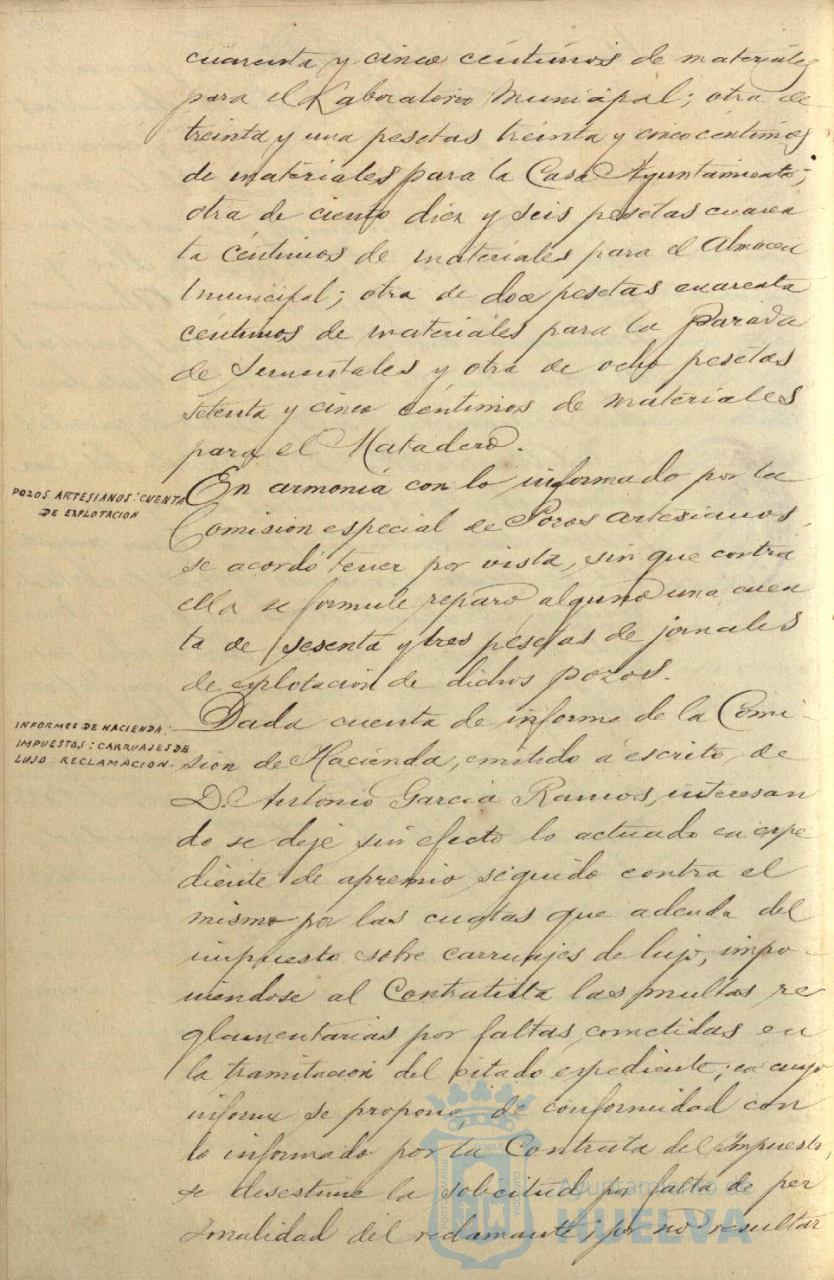 cuarenta y cinco céntimos de materiales
para el Laboratorio Municipal; otra de
treinta y una pesetas treinta y cinco céntimos
de materiales para la Casa Ayuntamiento;
otra de ciento diez y seis pesetas cuaren
ta céntimos de materiales para el Almacen
Municipal; otra de doce pesetas cuarenta
céntimos de materiales para la Parada
de Sementales y otra de ocho pesetas
setenta y cinco céntimos de materiales
para el Matadero.
POZOS ARTESIANOS: CUENTA
DE EXPLOTACION
En armonía con lo informado por la
Comision especial de Pozos artesianos,
se acordó tener por vista, sin que contra
ella se formule reparo alguno una cuen
ta de sesenta y tres pesetas de jornales
de explotación de dichos pozos.
INFORMES DE HACIENDA:
IMPUESTOS: CARRUAJES DE
LUJO RECLAMACION.
Dada cuenta de informe de la Comi-
sion de Hacienda, emitido á escrito de
D. Antonio García Ramos, interesan
do se deje sin efecto lo actuado en expe
diente de apremio seguido contra el
mismo por las cuotas que adeuda del
impuesto sobre carruajes de lujo, impo-
niéndose al Contratista las multas re
glamentarias por faltas cometidas en
la tramitacion del citado expediente; en cuyo
informe se propone, de conformidad con
lo informado por la Contrata del Impuesto,
se desestime la solicitud por falta de per
sonalidad del reclamante, por no resultar
Ayuntamiento de
HUELVA